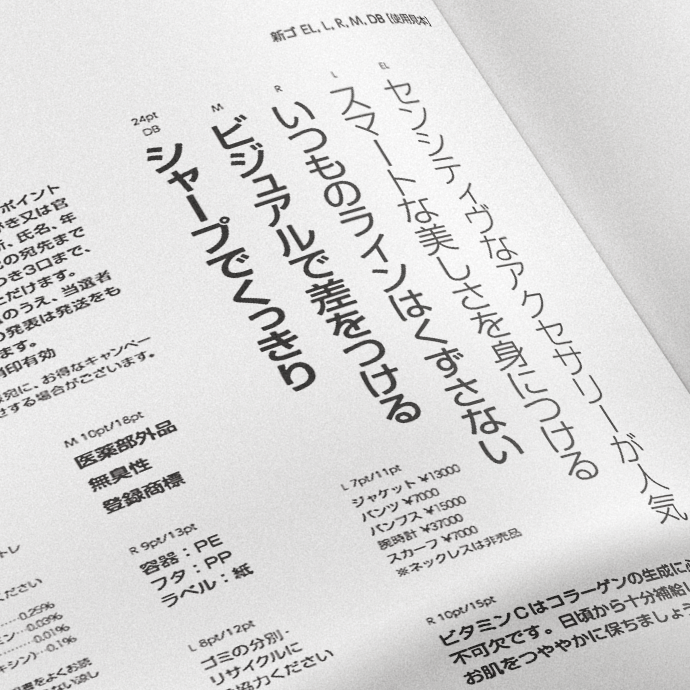 新ゴ EL, L, R, M, DB [使用見本]
EL
センシティヴなアクセサリーが人気
L
スマートな美しさを身につける
R
いつものラインはくずさない
M
ビジュアルで差をつける
24pt
DB
シャープでくっきり
ポイント
き又は官
、氏名、年
の宛先まで
つき3口まで、
ただけます。
のうえ、当選者
の発表は発送をも
ます。
消印有効
宛に、お得なキャンペー
せする場合がございます。
M 10pt/18pt
医薬部外品
無臭性
登録商標
R 9pt/13pt
容器：PE
フタ：PP
ラベル：紙
L 8pt/12pt
ゴミの分別・
リサイクルに
協力ください
L 7pt/11pt
ジャケット ¥13000
パンツ ¥7000
パンプス ¥15000
腕時計 ¥37000
スカーフ ¥7000
※ネックレスは非売品
R 10pt/15pt
ビタミンCはコラーゲンの生成に
不可欠です。日頃から十分補給し
お肌をつややかに保ちましょう
トレ
ください
0.25%
ン…0.03%
0.01%
キシン)…0.1%
書をよくお読
ない涼し